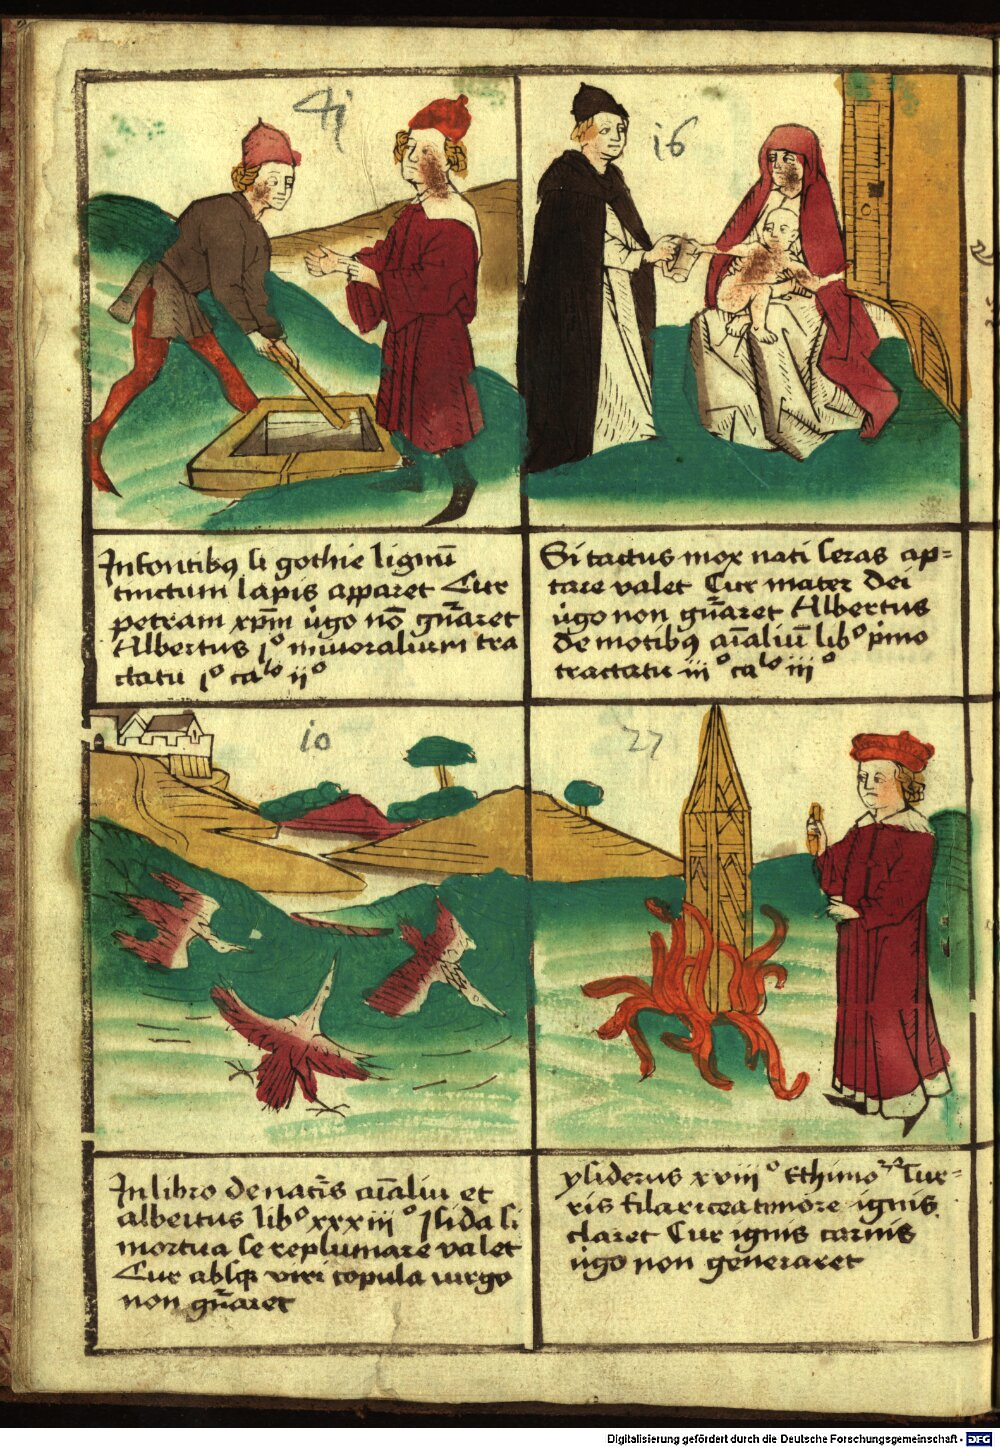 4j
In fontibꝯ si gothie lignū
tinctum lapis apparet Cur
petram xp̄m ũgo nō gn̄aret
Albertus j° mīnoralium tra
ctatu j° calo ij°
i6
Si tactus mox nati seras ap=
tare valet Cur mater dei
ũgo non gn̄aret Albertus
de motibꝯ aīaliū lib° pīmo
tractatu iij° calo iij°
io
In libro de natīs aīaliū et
albertus lib° xxxiii° Isida si
mortua se replumare valet
Cur absqꝫ viri copula virgo
non gn̄aret
27
ysiderus xviii° Ethimo Tur=
ris si laricea timore ignis
claret Cur ignis carnis
ũgo non generaret
Digitalisierung gefördert durch die Deutsche Forschungsgemeinschaft - DFG